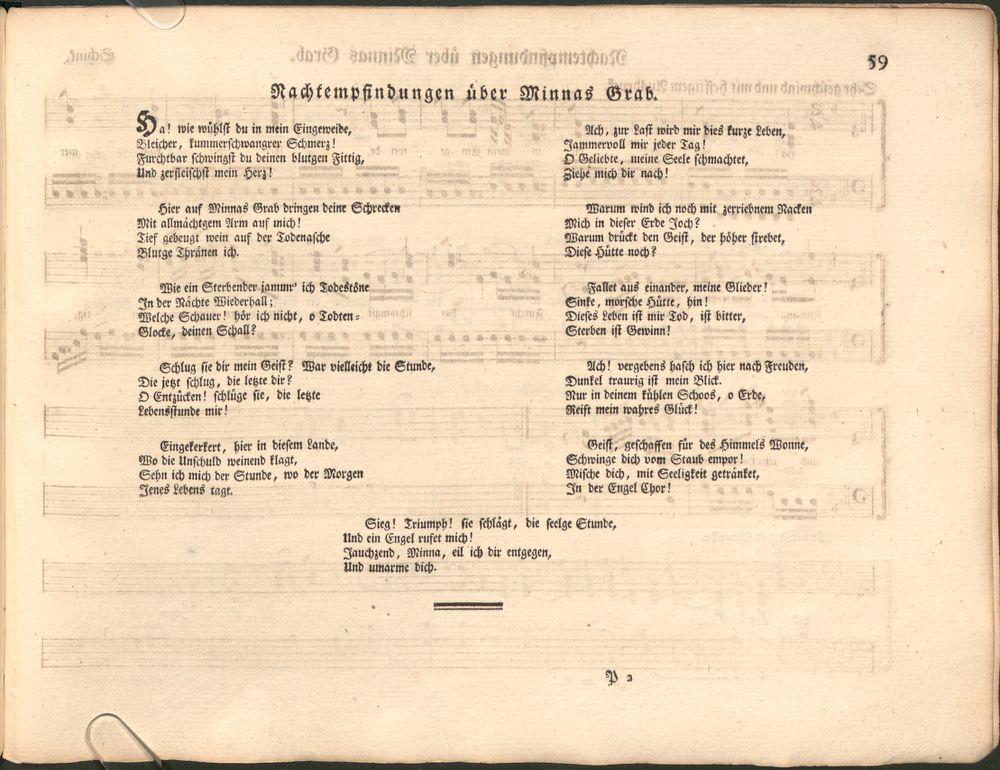 59
Nachtempfindungen über Minnas Grab.
Ha! wie wühlst du in mein Eingeweide,
Bleicher, kummerschwangrer Schmerz!
Furchtbar schwingst du deinen blutgen Fittig,
Und zerfleischst mein Herz!
Hier auf Minnas Grab dringen deine Schrecken
Mit allmächtgem Arm auf mich!
Tief gebeugt wein auf der Todenasche
Blutge Thränen ich.
Wie ein Sterbender jammr' ich Todestöne
In der Nächte Wiederhall;
Welche Schauer! hör ich nicht, o Todten-
Glocke, deinen Schall?
Schlug sie dir mein Geist? War vielleicht die Stunde,
Die jetzt schlug, die letzte dir?
O Entzücken! schlüge sie, die letzte
Lebensstunde mir!
Eingekerkert, hier in diesem Lande,
Wo die Unschuld weinend klagt,
Sehn ich mich der Stunde, wo der Morgen
Jenes Lebens tagt.
Ach, zur Last wird mir dies kurze Leben,
Jammervoll mir jeder Tag!
O Geliebte, meine Seele schmachtet,
Ziehe mich dir nach!
Warum wind ich noch mit zerriebnem Nacken
Mich in dieser Erde Joch?
Warum drückt den Geist, der höher strebet,
Diese Hütte noch?
Fallet aus einander, meine Glieder!
Sinke, morsche Hütte, hin!
Dieses Leben ist mir Tod, ist bitter,
Sterben ist Gewinn!
Ach! vergebens hasch ich hier nach Freuden,
Dunkel traurig ist mein Blick.
Nur in deinem kühlen Schoos, o Erde,
Reift mein wahres Glück!
Geist, geschaffen für des Himmels Wonne,
Schwinge dich vom Staub empor!
Mische dich, mit Seeligkeit getränket,
In der Engel Chor!
Sieg! Triumph! sie schlägt, die seelge Stunde,
Und ein Engel rufet mich!
Jauchzend, Minna, eil ich dir entgegen,
Und umarme dich.
P 2